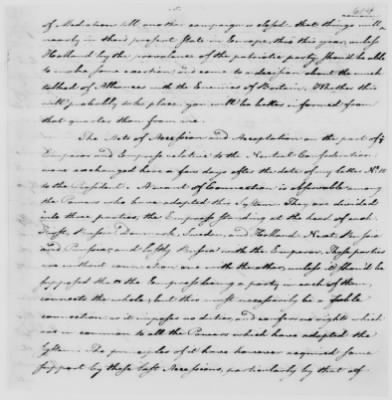 of Mediation till another campaign is closed that things will
nearly in their present State in Europe, thro this year, unless
Holland by the prevalence of the patriotic party should be able
to make some exertion and come to a decision about the much
talked of Alliances with the Enemies of Britain. Whether this
will probably take place, you will be better informed from
that quarter than from me.
The Acts of Accession and Acceptation on the part of ye
Emperor and Empress relative to the Neutral Confederation
were exchanged here a few days after the date of my letter No. 15
to the President. A want of Connection is observable among
the Powers who have adopted this System. They are divided
into three parties, the Empress standing at the head of each
First, Russia Denmark, Sweden, and Holland. Next Russia
and Prussia, and lastly Russia with the Emperor. These parties
are without connection one with the other, unless it should be
supposed that the Empress being a party in each of them,
connects the whole, but this must necessarily be a feeble
connection as it imposes no duties, and confirms rights which
are in common to all the Powers which have adopted the
System. The principles of it have however acquired some
support by these last Accessions, particularly by that of